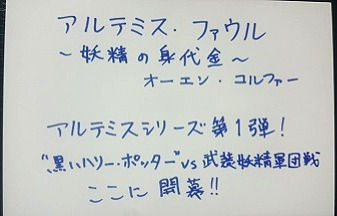 アルテミス・ファウル
〜妖精の身代金〜
オーエン・コルファー
アルテミスシリーズ第1弾!
"黒いハリー・ポッター"vs武装妖精軍団戦
ここに開幕!!